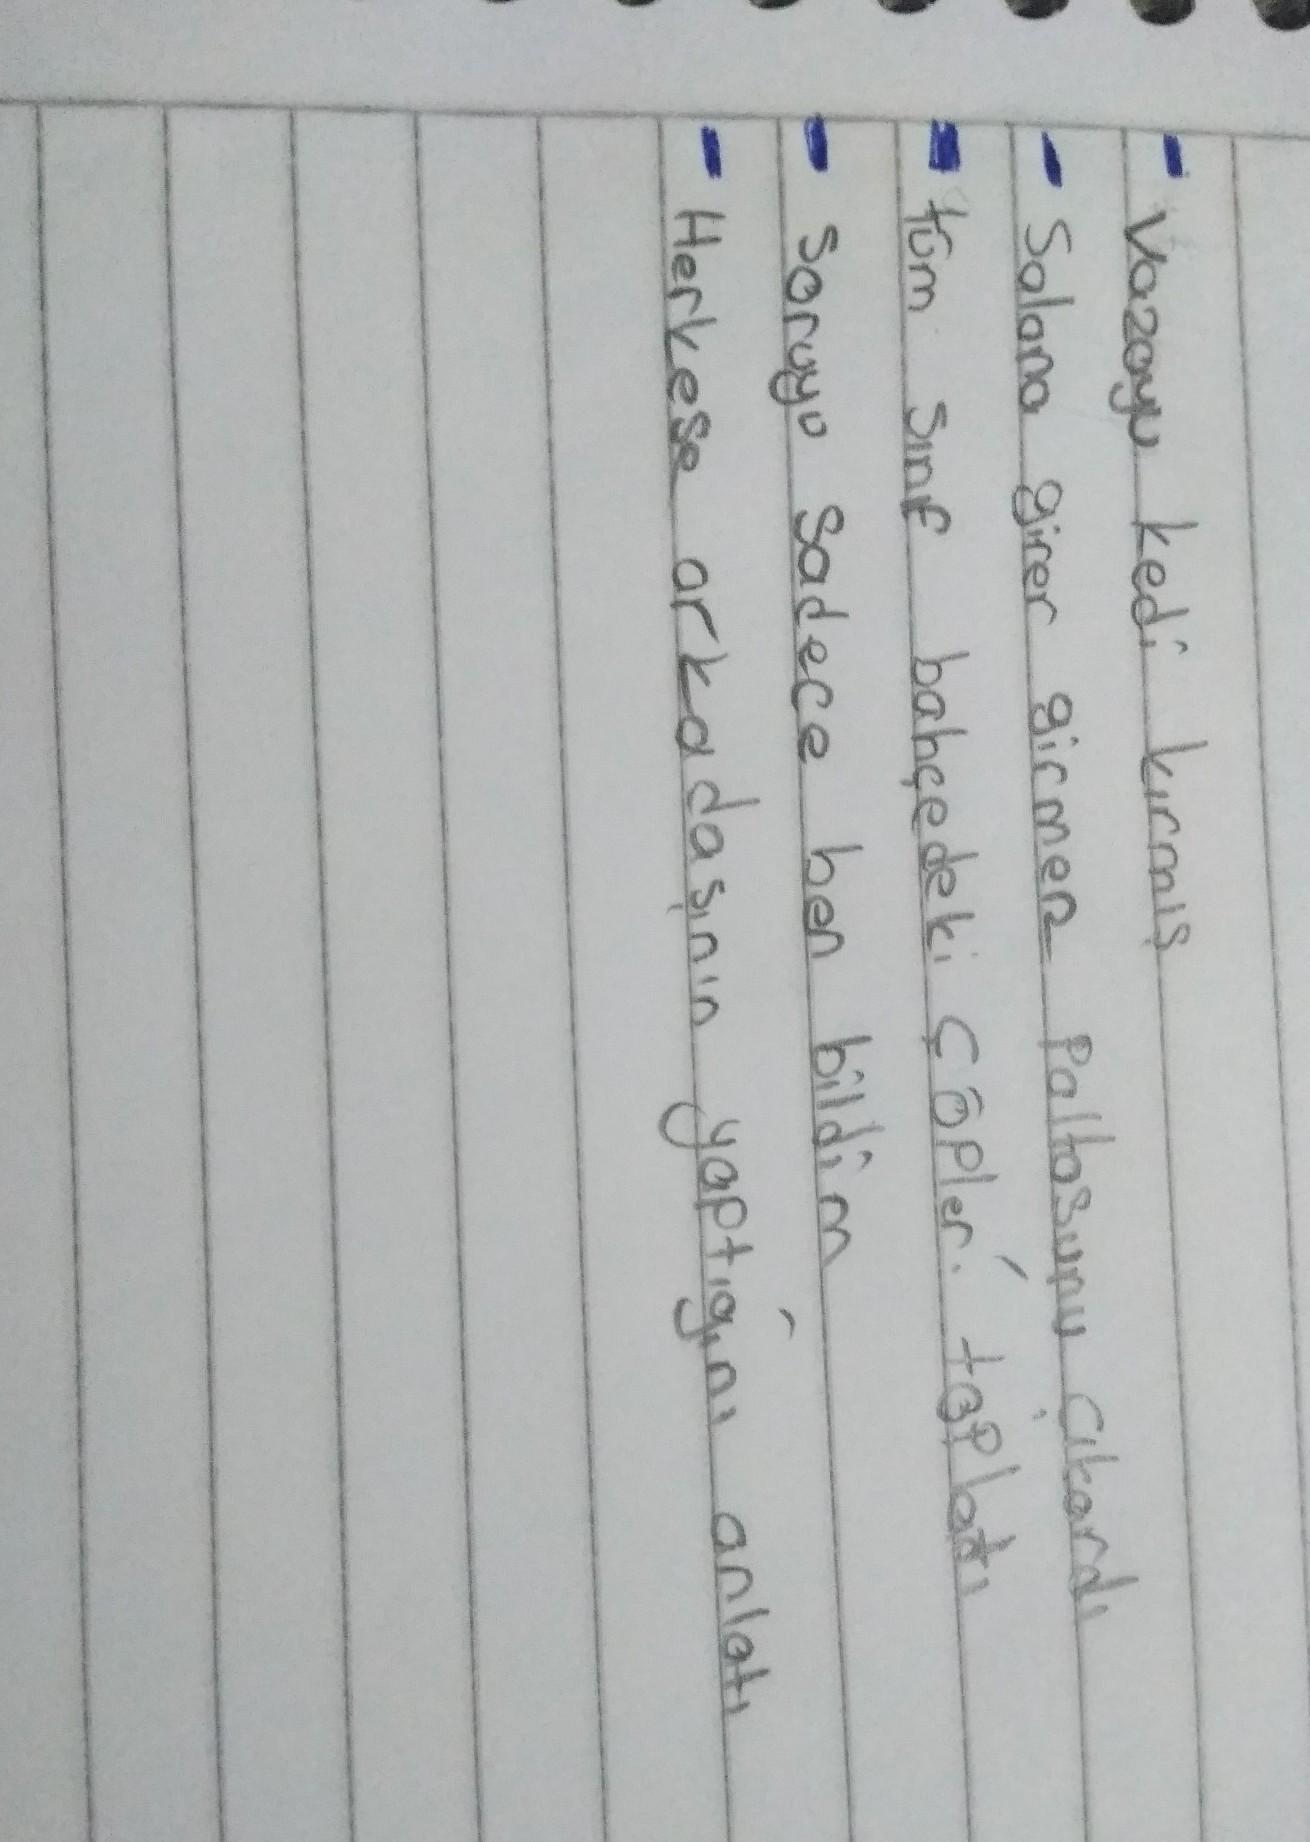 - Vazoyu kedi kırmış
- Salona girer girmez Paltosunu çıkardı
- tüm sınıf bahçedeki çöpleri topladı
- soruyu sadece ben bildim
- Herkese arkadaşının yaptığını anlatı